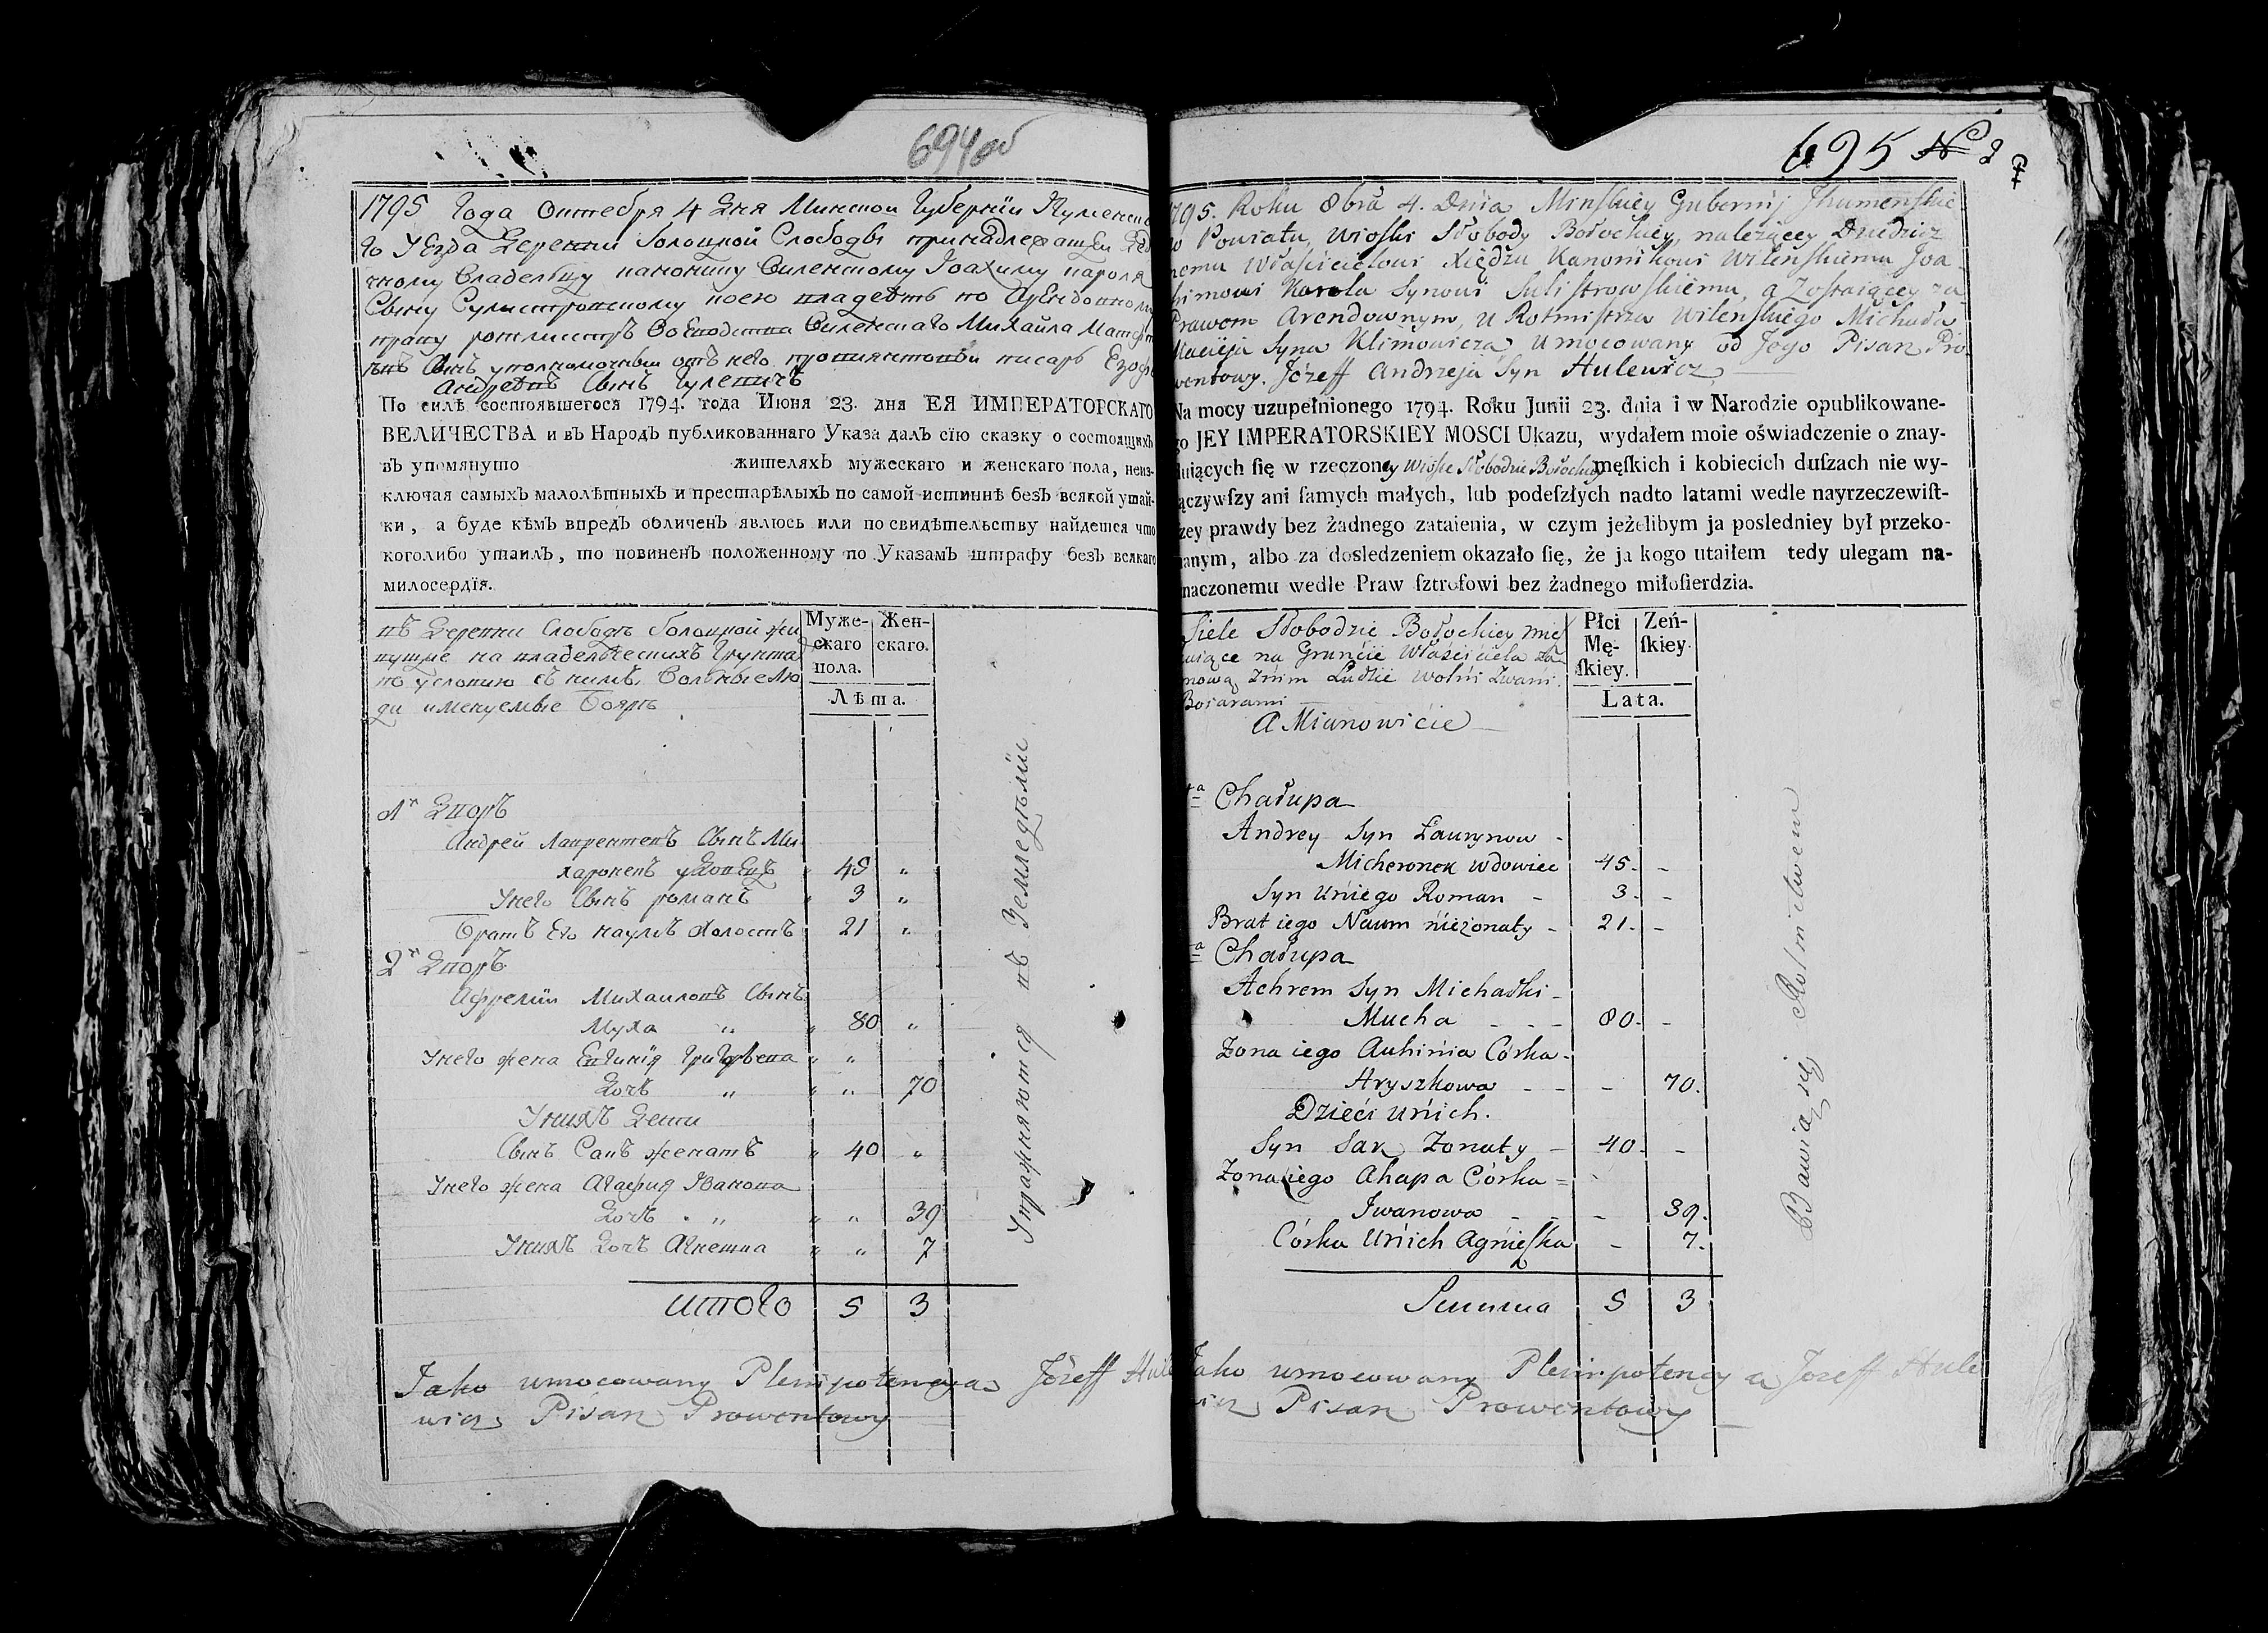 694 об
1795 Года Октебря 4 Дня Минской Губерніи Игуменска
го Уезда Деревни Болоцкой Слободы принадлежащей Дед
чному Владельцу Канонику Виленскому Іоахиму Кароля
Сыну Сулистровскому коею владеетъ по Арендовному
праву ротмистръ Воеводства Виленскаго Михайла
Сынъ уполномочный отъ него провиянтовой писарь
Андреевъ Сынъ Гулевичъ
По силѣ состоявшегося 1794. года Июня 23. дня ЕЯ ИМПЕРАТОРСКАГО
ВЕЛИЧЕСТВА и въ Народъ публикованнаго Указа далъ сїю сказку о состоящихъ
въ упомянуто жителяхъ мужескаго и женскаго пола, неиз-
ключая самыхъ малолѣтныхъ и престарѣлыхъ по самой истиннѣ безъ всякой утай-
ки, а буде кѣмъ впредъ обличенъ явлюсь или по свидѣтельству найдется что
коголибо утаилъ, то повиненъ положенному по Указамъ штрафу безъ всякаго
милосердїя.
въ Деревни Слободѣ Болоцкой жи
вущие на владельческихъ Грунта
по условию съ нимъ Вольные Лю
ди именуемые Бояре
Муже-
скаго
пола.
Жен-
скаго.
Лѣта.
1й Дворъ
Андрей Лаврентевъ Сынъ Ми
харонекъ удовецъ 45 "
Унего Сынъ романъ 3 "
Братъ Его наумъ Холостъ 21 "
2й Дворъ
Афремій Михаиловъ Сынъ
Муха " " 80 "
Унего жена Евгинїя Григорьева " "
Дочь " " " 70
Унихъ Дети
Сынъ Савъ женатъ " 40 "
Унего жена Агафия Иванова
Дочь " " " 39
Унихъ Дочь Агнешка " " 7
Упражняются въ Земледѣлїи
итого 5 3
Jako umocowany Plenipotencyą Józeff Hule
wicz Pisarz Prowentowy
695 № 2
1795. Roku 8bra 4. Dnia Minskiey Gubernij Jhumenskie
go Powiatu, wioski Słobody Bołockiey, należącey Dziedzicz
nemu Właścicielowi Xiędzu Kanonikowi Wilenskiemu Joa
himowi Karola Synowi Sulistrowskiemu, a Zostaiącey za
Prawem Arendownym, u Rotmistrza Wilenskiego Michała
Macieja Syna Klimowicza, Umocowany od Jego Pisarz Pro
wentowy. Józeff Andrzeja Syn Hulewicz
Na mocy uzupełnionego 1794. Roku Junii 23. dnia i w Narodzie opublikowane-
go JEY IMPERATORSKIEY MOSCI Ukazu, wydałem moie oświadczenie o znay-
duiących ſię w rzeczoney Wiosce Słobodzie Bołockiey męſkich i kobiecich duſzach nie wy-
ączywſzy ani ſamych małych, lub podeſzłych nadto latami wedle nayrzeczewiſt-
zey prawdy bez żadnego zataienia, w czym jeżelibym ja posledniey był przeko-
nanym, albo za dosledzeniem okazało ſię, że ja kogo utaiłem tedy ulegam na-
naczonemu wedle Praw ſztrofowi bez żadnego miłoſierdzia.
Siele Słobodzie Bołockiey mie
kaiące na Gruncie Właściciela za
mową Znim Ludzie Wolni Zwani
Boiarami
A Mianowicie
Płci
Mę-
ſkiey.
Zeń-
ſkiey.
Lata.
1a Chałupa
Andrey Syn Ławrynow -
Micheronek Wdowiec 45. -
Syn Uniego Roman - 3. -
Brat iego Naum nieżonaty - 21. -
a Chałupa
Achrem Syn Michałki -
Mucha - - - 80. -
Zona iego Auhinia Córka -
Hryszkowa - - - 70.
Dzieci Unich.
Syn Sak Zonaty - 40. -
Zona iego Ahapa Córka -
Iwanowa - - - 39.
Córka Unich Agnieſka - 7.
Bawią się Rolnictwem
Summa 5 3
Jako umocowany Plenipotencyą Jozeff Hule
wicz Pisarz Prowentowy